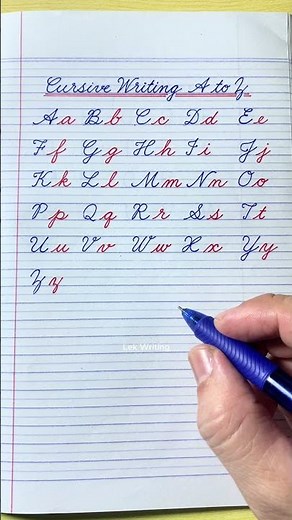 Cursive Writing A to Z
Aa Bb Cc Dd Ee
Ff Gg Hh Ii Jj
Kk Ll Mm Nn Oo
Pp Qq Rr Ss Tt
Uu Vv Ww Xx Yy
Zz
Lek Writing